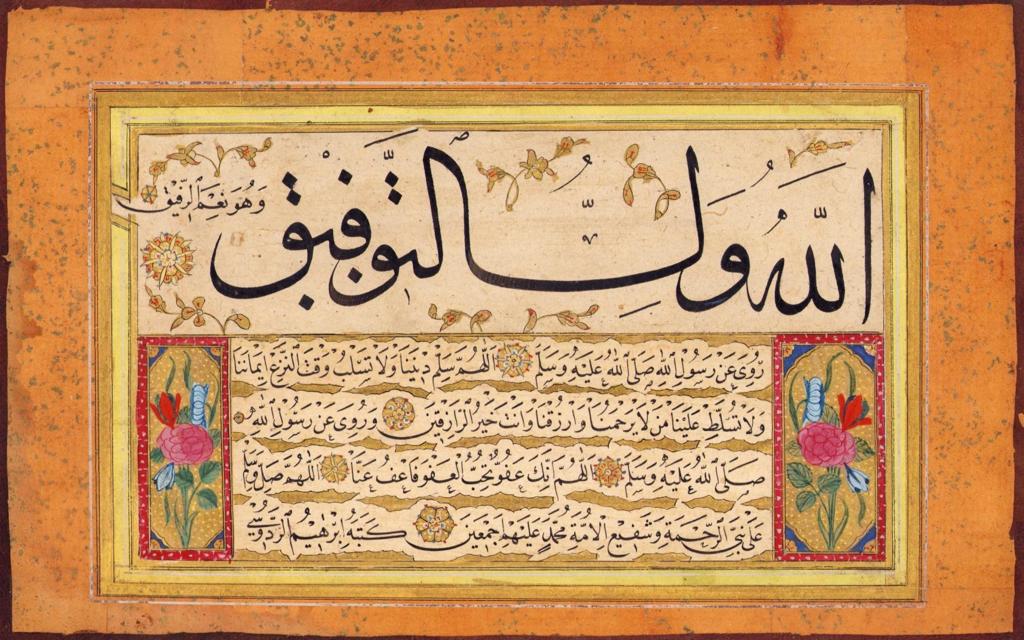 اللّٰهُ وَلِيُّ التَّوْفِيْقِ
وَهُوَ نِعْمَ الرَّفِيْقِ
رُوِيَ عَنْ رَسُولِ اللهِ صَلَّى اللهُ عَلَيْهِ وَسَلَّمَ اَللّٰهُمَّ سَلِّمْ دِيْنَنَا وَلَا تَسْلُبْ وَقْتَ النَّزْعِ اِيمَانَنَا
وَلَا تُسَلِّطْ عَلَيْنَا مَنْ لَا يَرْحَمُنَا وَارْزُقْنَا وَاَنْتَ خَيْرُ الرَّازِقِيْنَ وَرُوِيَ عَنْ رَسُولِ اللهِ
صَلَّى اللهُ عَلَيْهِ وَسَلَّمَ اَللّٰهُمَّ اِنَّكَ عَفُوٌّ تُحِبُّ الْعَفْوَ فَاعْفُ عَنَّا اَللّٰهُمَّ صَلِّ وَسَلِّمْ
عَلَى نَبِيِّ الرَّحْمَةِ وَشَفِيْعِ الْاُمَّةِ مُحَمَّدٍ عَلَيْهِمْ اَجْمَعِيْنَ كَتَبَهُ اِبْرٰهِيْمُ الرَّدُوسِي